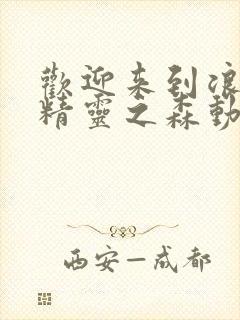 歡迎来到浪
精靈之森動
西安—成都